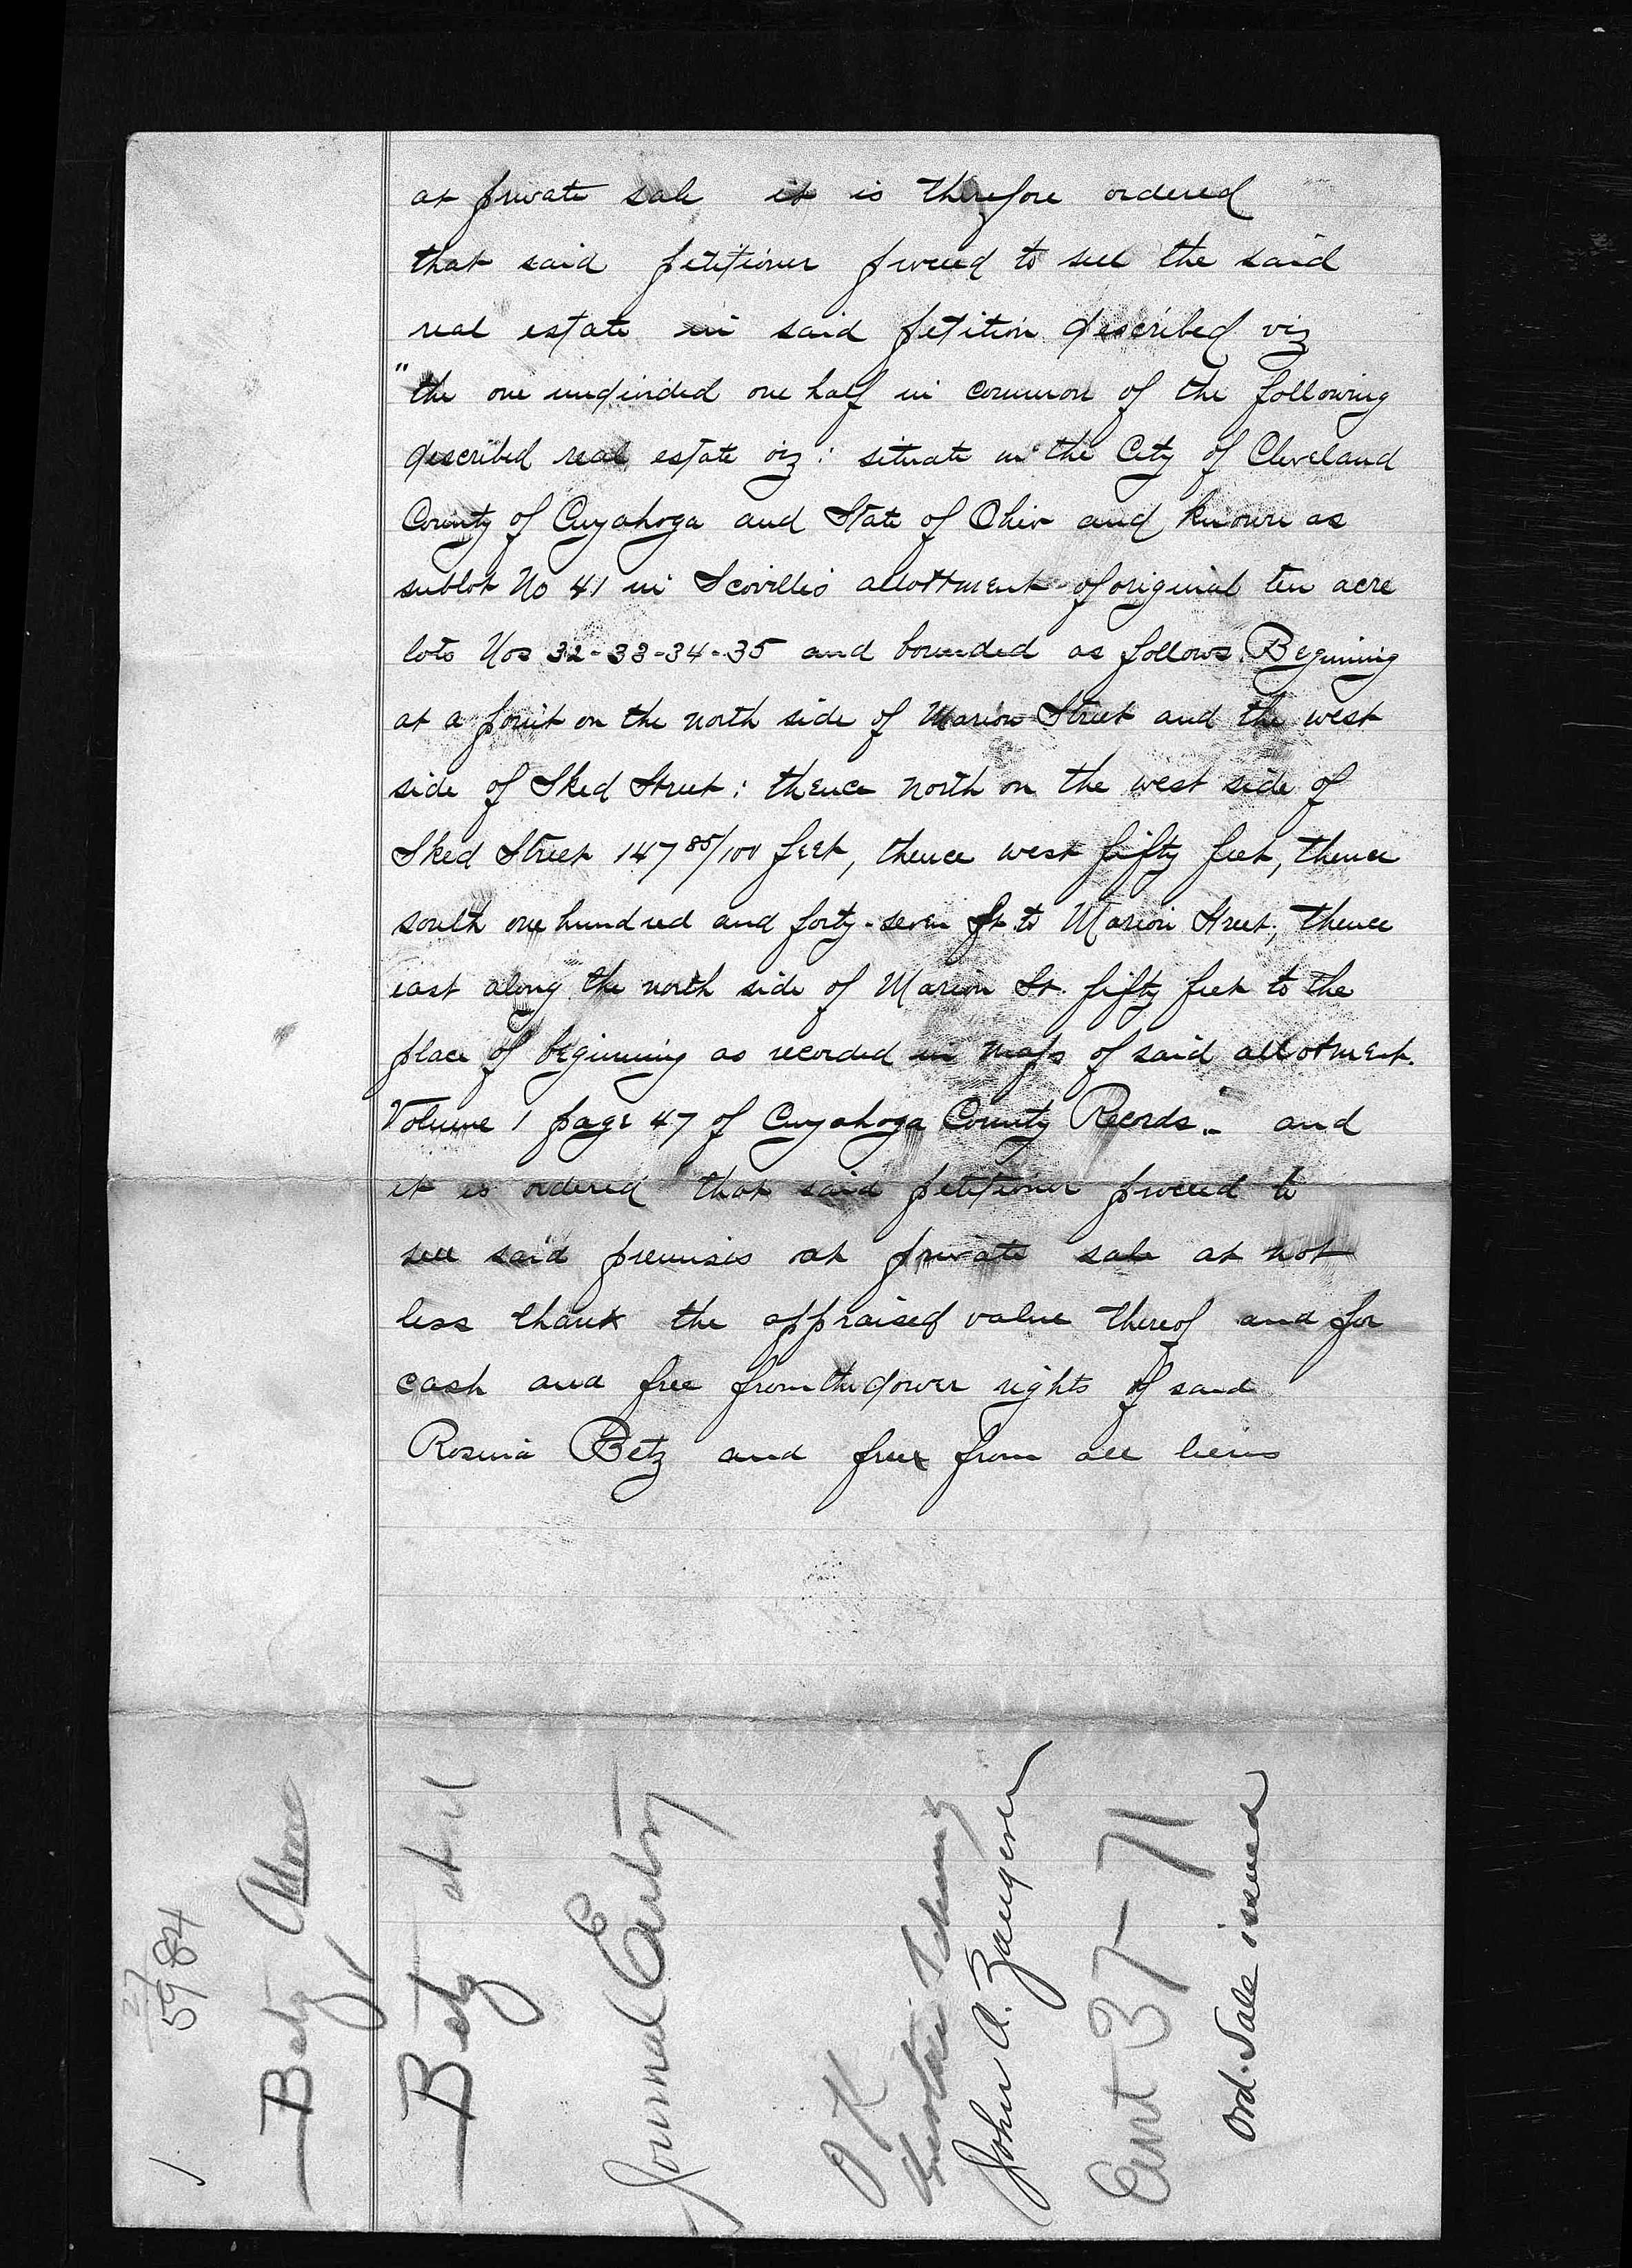 at private sale it is therefore ordered
that said petitioner proceed to sell the said
real estate in said petition described viz
"the one undivided one half in common of the following
described real estate viz: situate in the City of Cleveland
County of Cuyahoga and State of Ohio and known as
sublot No 41 in Scovilles allottment of original ten acre
lots Nos 32-33-34-35 and bounded as follows Beginning
at a point on the north side of Marion Street and the west
side of Sked Street: thence north on the west side of
Sked Street 147 85/100 feet, thence west fifty feet, thence
south one hundred and forty-seven ft. to Marion Street; thence
east along the north side of Marion St. fifty feet to the
place of beginning as recorded in maps of said allotment.
Volume 1 page 47 of Cuyahoga County Records." and
it is ordered that said petitioner proceed to
sell said premises at private sale at not
less than the appraised value thereof and for
cash and free from the dower rights of said
Rosina Betz and free from all liens
27
5984
1
Betz
Betz
Journal Entry
OK
John A. Zangerle
Ent 37-71
Ord. Sale issued